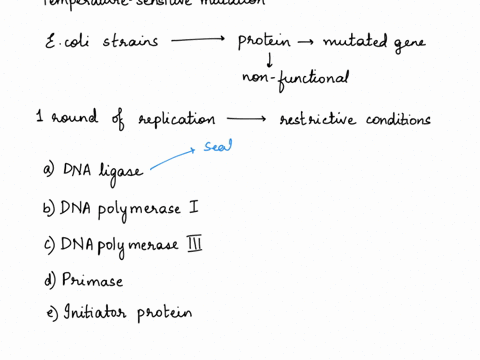 Temperature-sensitive mutation
E.coli strains → protein → mutated gene
↓
non-functional
1 round of replication → restrictive conditions
seal
a) DNA ligase
b) DNA polymerase I
c) DNA polymerase III
d) Primase
e) Initiator protein